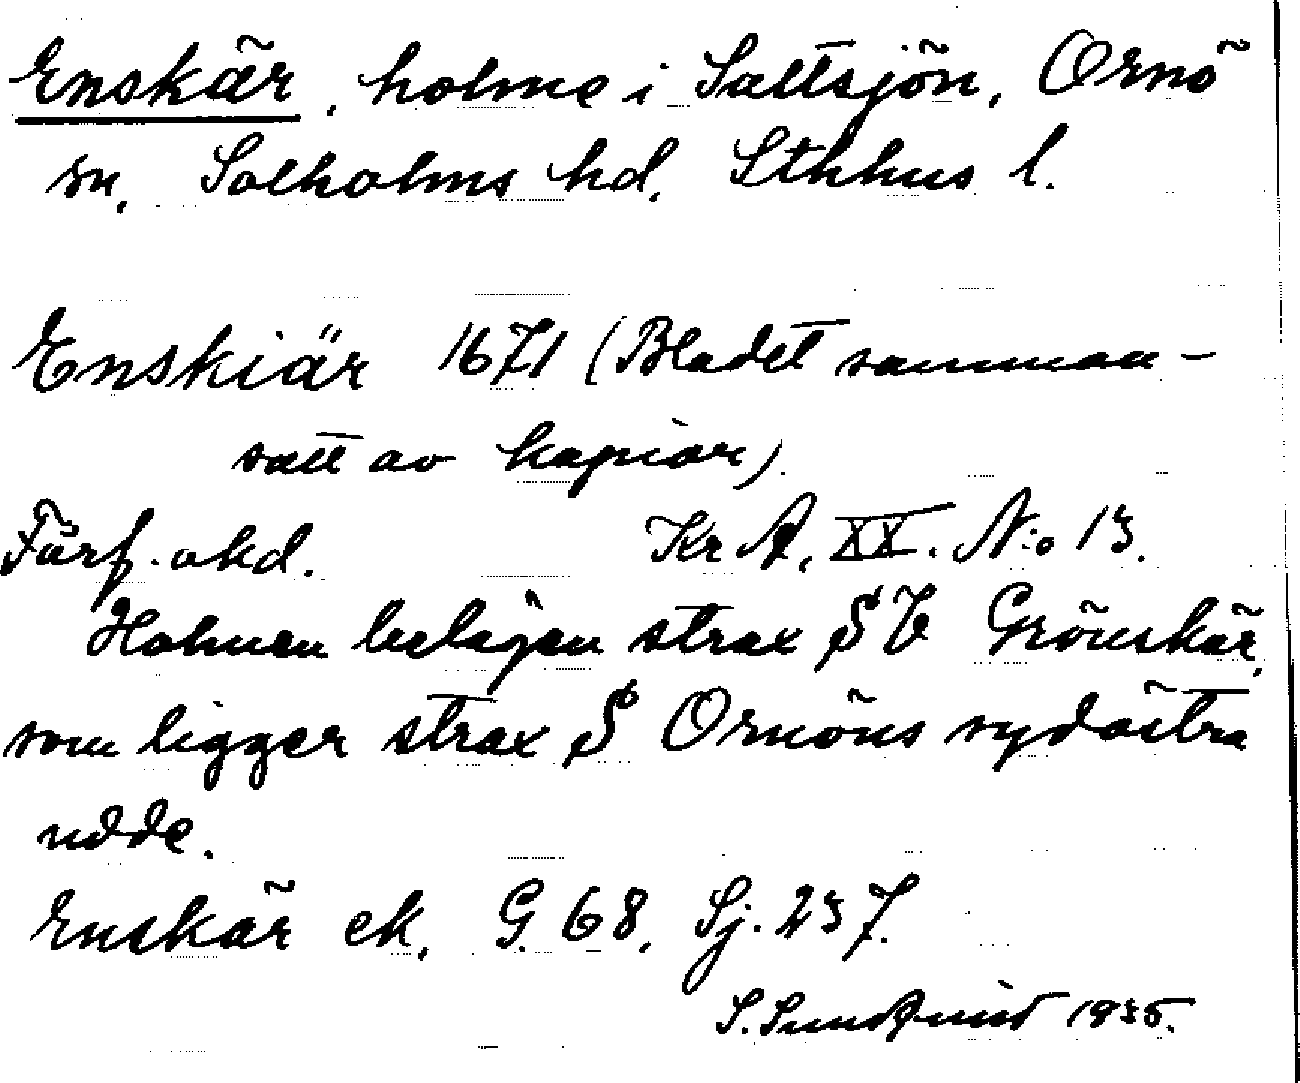 Enskär, holme i Saltsjön, Ornö
sn, Sotholms hd, Sthlms l.
Enskiär 1671 (Bladet samman-
satt av kopior)
Förf. okd. Kr A, XX. N:o 13.
Holmen belägen strax SV Grönskär,
som ligger strax S Ornöns sydöstra
udde.
Enskär ek. G. 68, Sj. 237.
S. Sundqvist 1935.